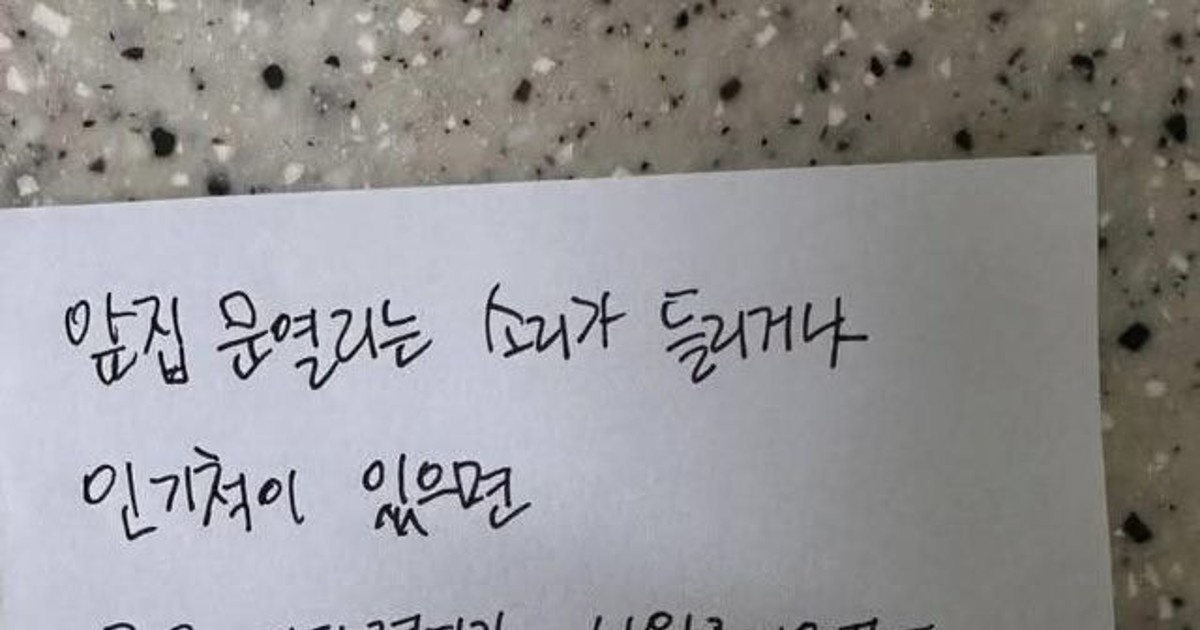 앞집 문열리는 소리가 들리거나
인기척이 있으면